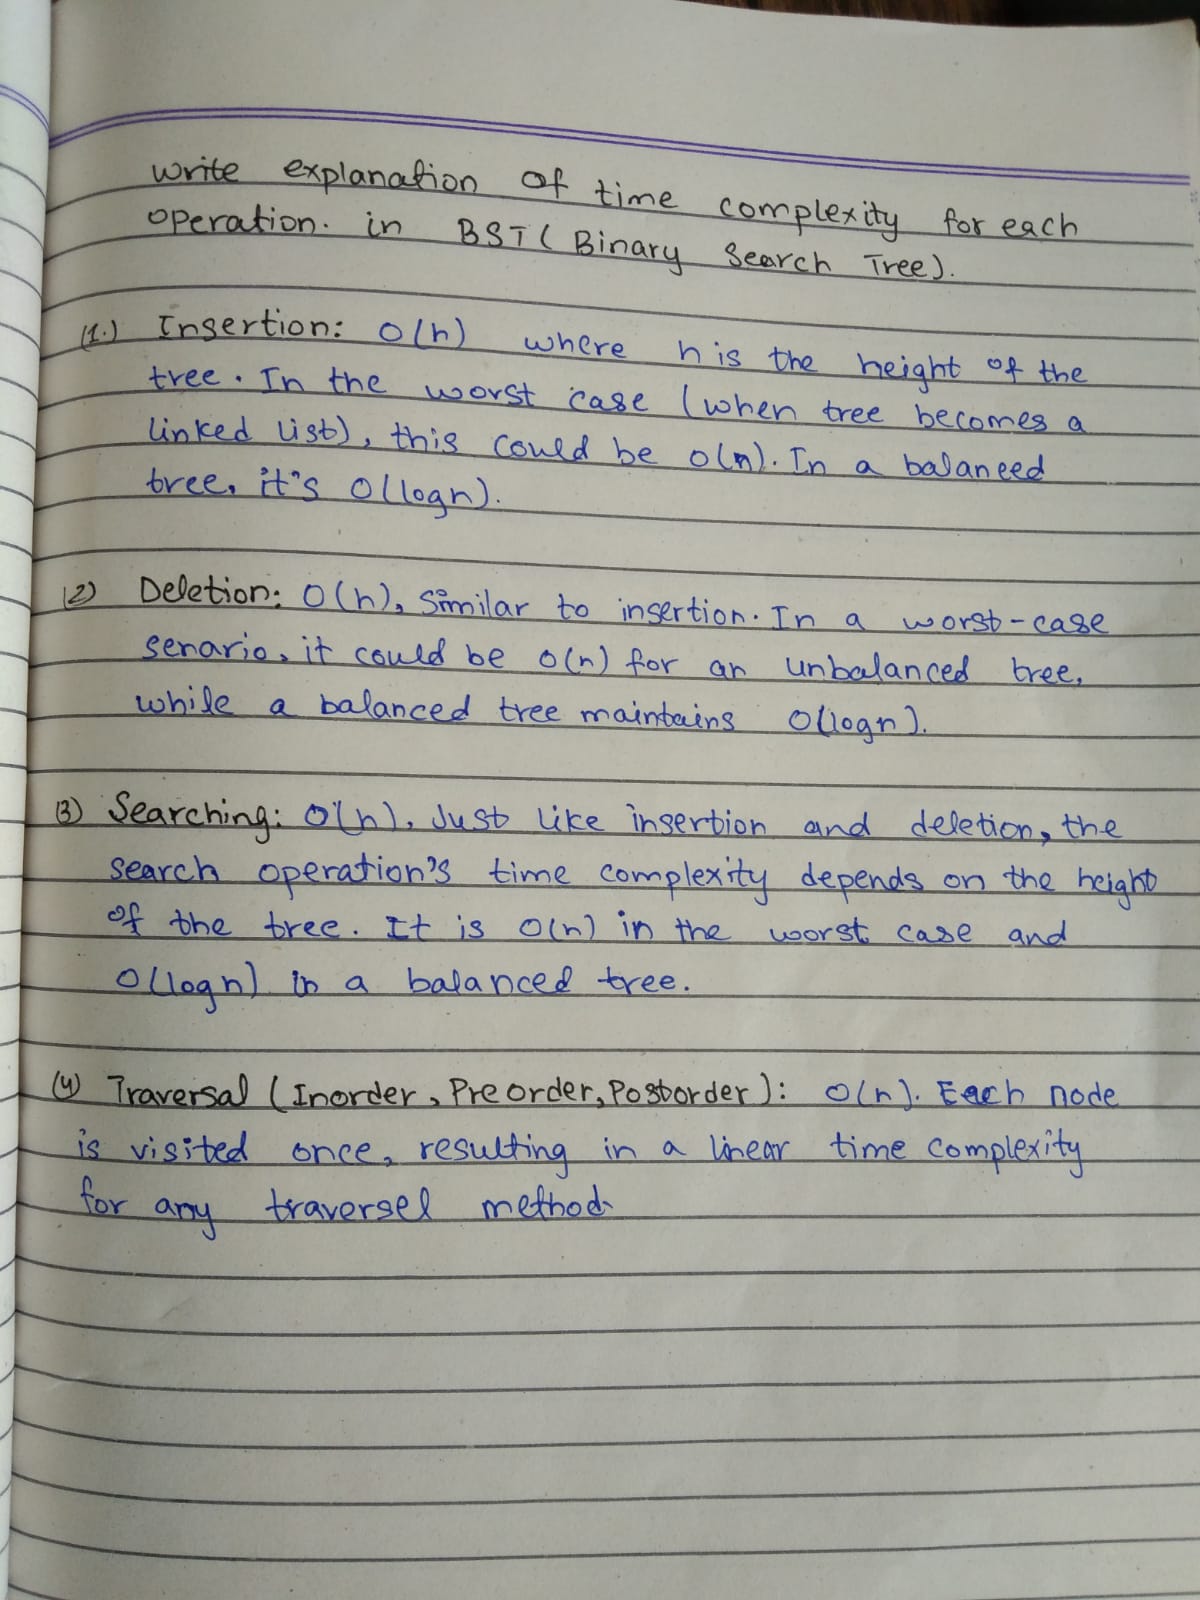 write explanation of time complexity for each
operation. in BST (Binary Search Tree).
(1.) Insertion: O(h) where h is the height of the
tree. In the worst case (when tree becomes a
linked list), this could be O(n). In a balanced
tree, it's O(logn).
(2) Deletion: O(h), similar to insertion. In a worst-case
senario, it could be O(n) for an unbalanced tree,
while a balanced tree maintains O(logn).
(3) Searching: O(h), Just like insertion and deletion, the
search operation's time complexity depends on the height
of the tree. It is O(n) in the worst case and
O(logn) in a balanced tree.
(4) Traversal (Inorder, Preorder, Postorder): O(n). Each node
is visited once, resulting in a linear time complexity
for any traversel method.